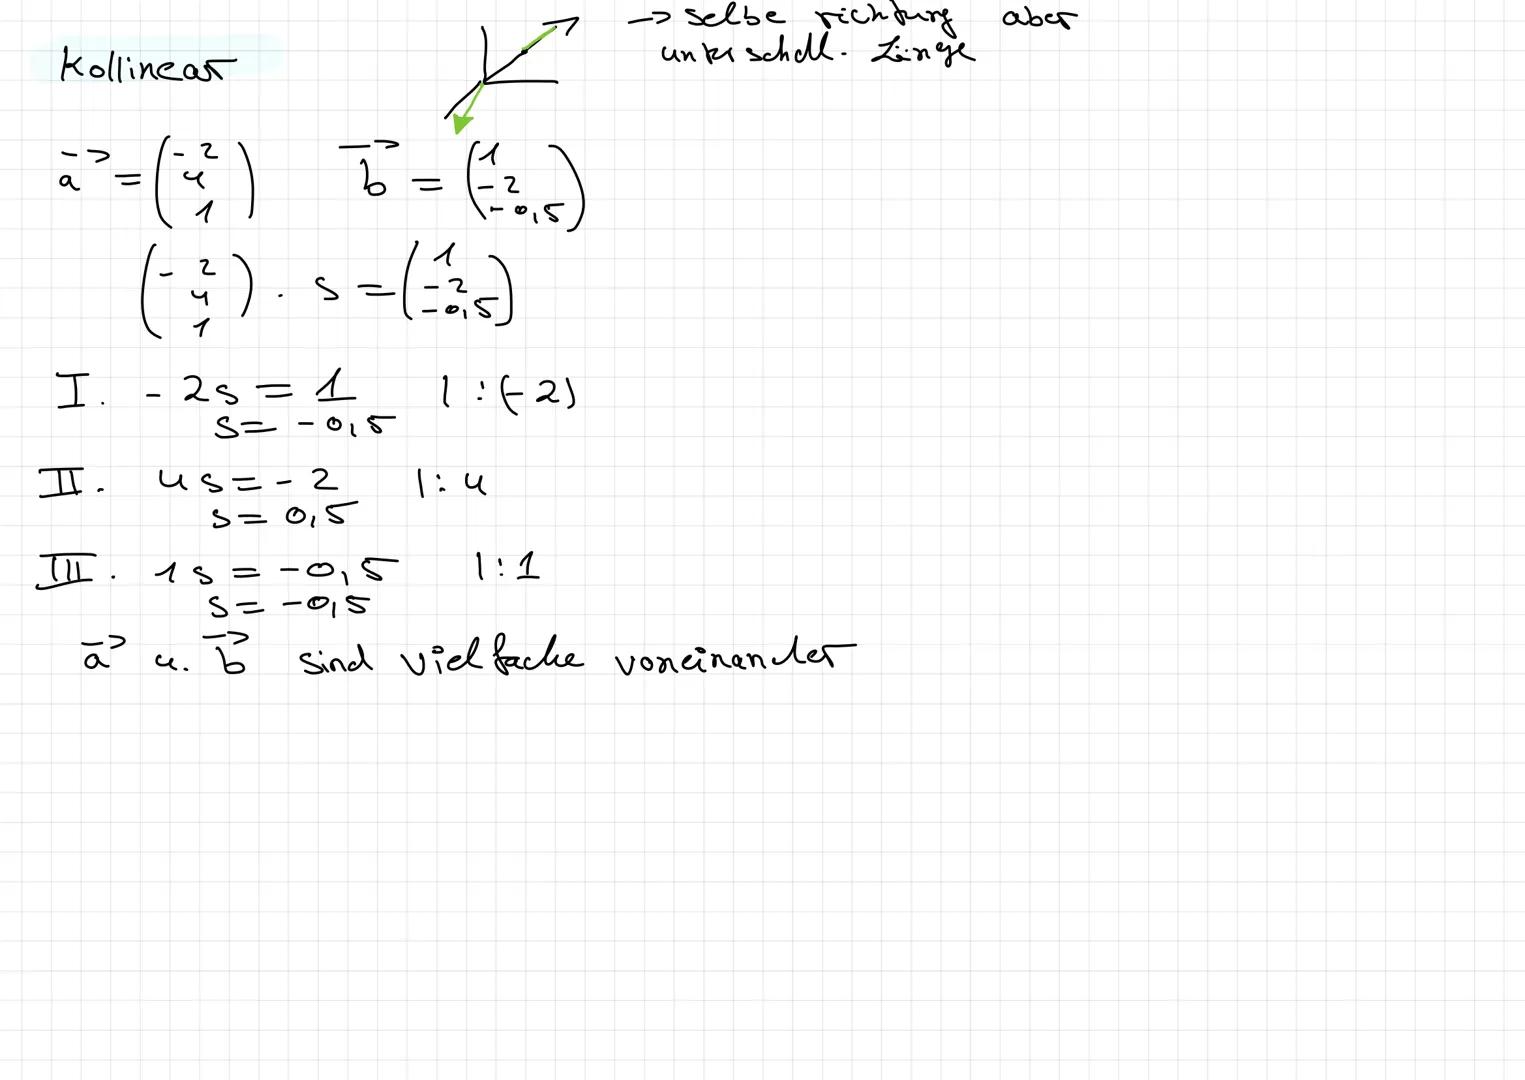 → selbe richtung aber
unterschdl. Länge
Kollinear
a⃗ = (-2 4 1) b⃗ = (1 -2 -0,5)
(-2 4 1) · s = (1 -2 -0,5)
I. -2s = 1 | : (-2)
s = -0,5
II. 4s = -2 | : 4
s = 0,5
III. 1s = -0,5 | : 1
s = -0,5
a⃗ u. b⃗ sind vielfache voneinander